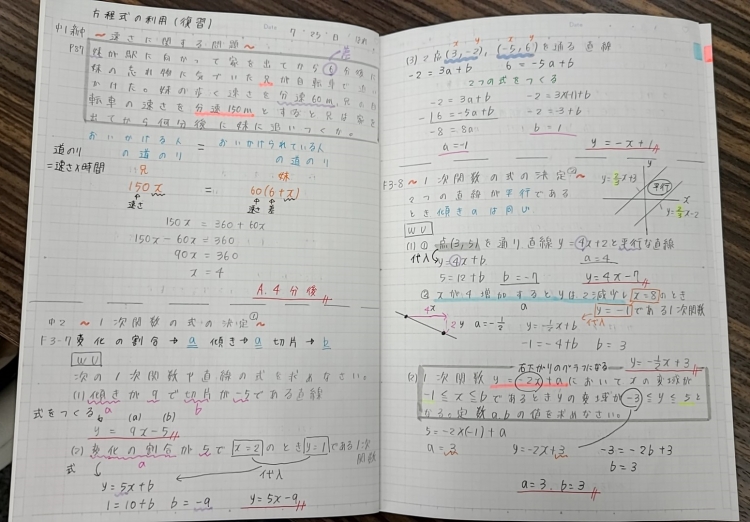 方程式の利用(復習)
Date 7・25・日
中1範囲 ～速さに関する問題～
P27
妹が駅に向かって家を出てから6分後に 差
妹の忘れ物に気づいた兄が自転車で追い
かけた。妹の歩く速さを分速60m、兄の自
転車の速さを分速150mとすると兄は家を
出てから何分後に妹に追いつくか。
おいかける人の道のり = おいかけられている人の道のり
道のり
=速さ×時間
兄 妹
150x = 60(6+x)
速さ 速さ 差
150x = 360+60x
150x-60x = 360
90x = 360
x = 4
A. 4分後
中2 ～1次関数の式の決定①～
F3-7 変化の割合→a 傾き→a 切片→b
WU
次の1次関数や直線の式を求めなさい。
(1) 傾きが9で切片が-5である直線
式をつくる (a) (b)
y = 9x-5
(2) 変化の割合が5で x=2 のとき y=1 である1次関数
式 a 代入
y=5x+b
1=10+b b=-9 y=5x-9
Date
(3) 2点(3,-2), (-5,6)を通る直線
x y x y
-2=3a+b 6=-5a+b
2つの式をつくる
-2=3a+b -2=3×(-1)+b
-)6=-5a+b -2=-3+b
-8=8a b=1
a=-1 y=-x+1
F3-8 ～1次関数の式の決定②～
2つの直線が平行である
とき傾きaは同じ
y=2/3x+3 平行 y x
y=2/3x-2
WU
(1) ① 点(3,5)を通り直線y=4x+2と平行な直線
代入 y=4x+b a=4
5=12+b b=-7 y=4x-7
② xが4増加するとyは2減少し x=8 のとき
y=-1 である1次関数
4x 2y a=-1/2 y=-1/2x+b 代入
a
-1=-4+b b=3
y=-1/2x+3
右下がりのグラフになる
(2) 1次関数 y=-2x+a において xの変域が
-1≦x≦bであるときyの変域が-3≦y≦5と
なる。定数a,bの値を求めなさい。
5=-2×(-1)+a
a=3 y=-2x+3 -3=-2b+3
b=3
a=3, b=3